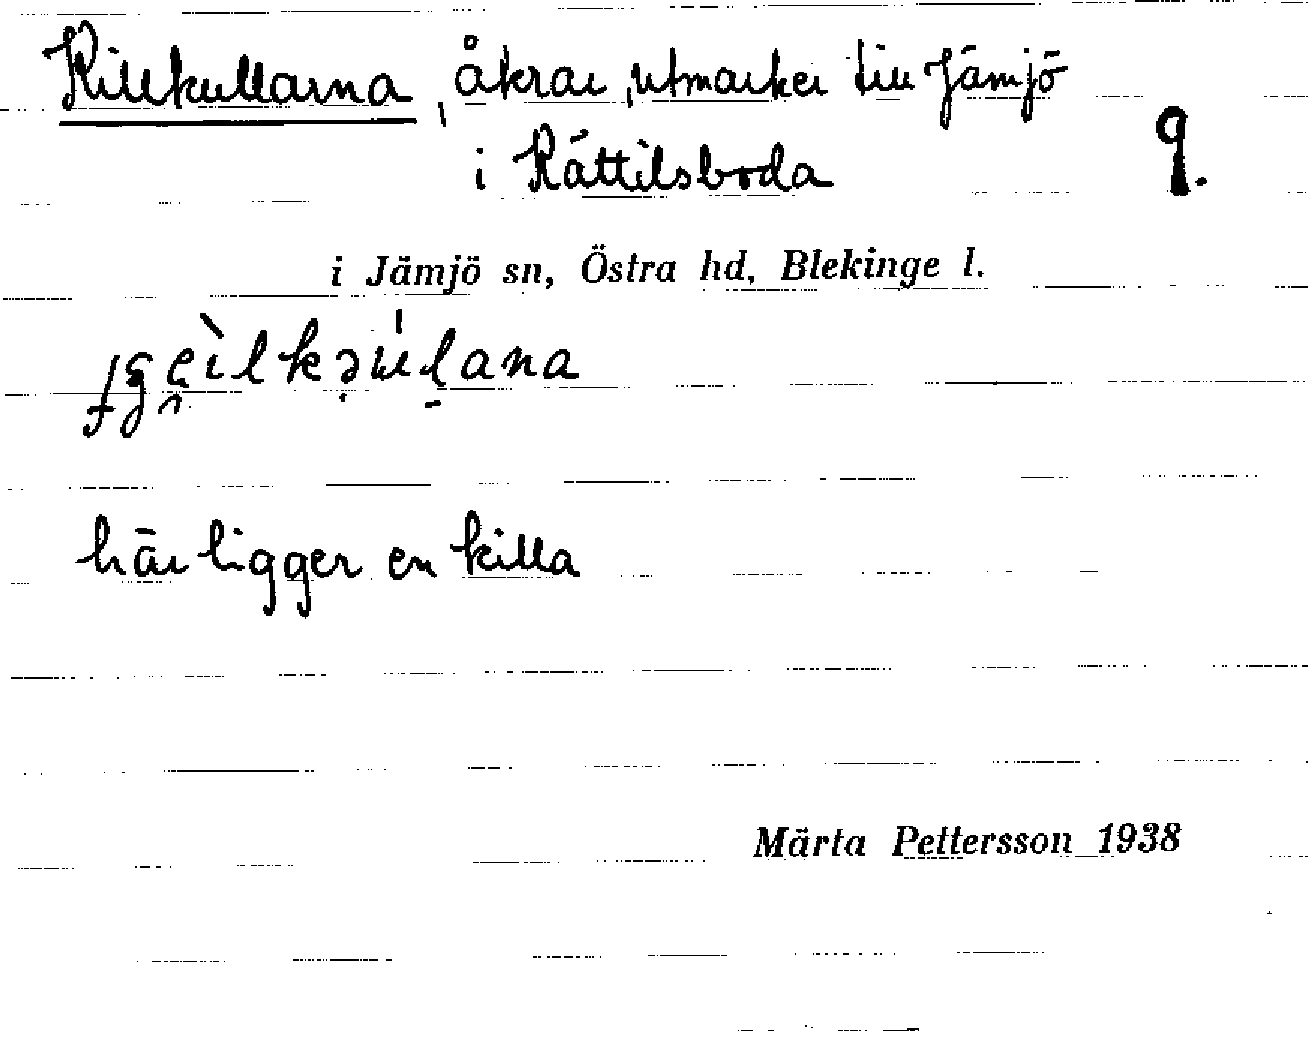 Killekullarna, åkrar, utmarker till Jämjö
i Kättilsboda 9.
i Jämjö sn, Östra hd, Blekinge l.
här ligger en killa
Märta Pettersson 1938